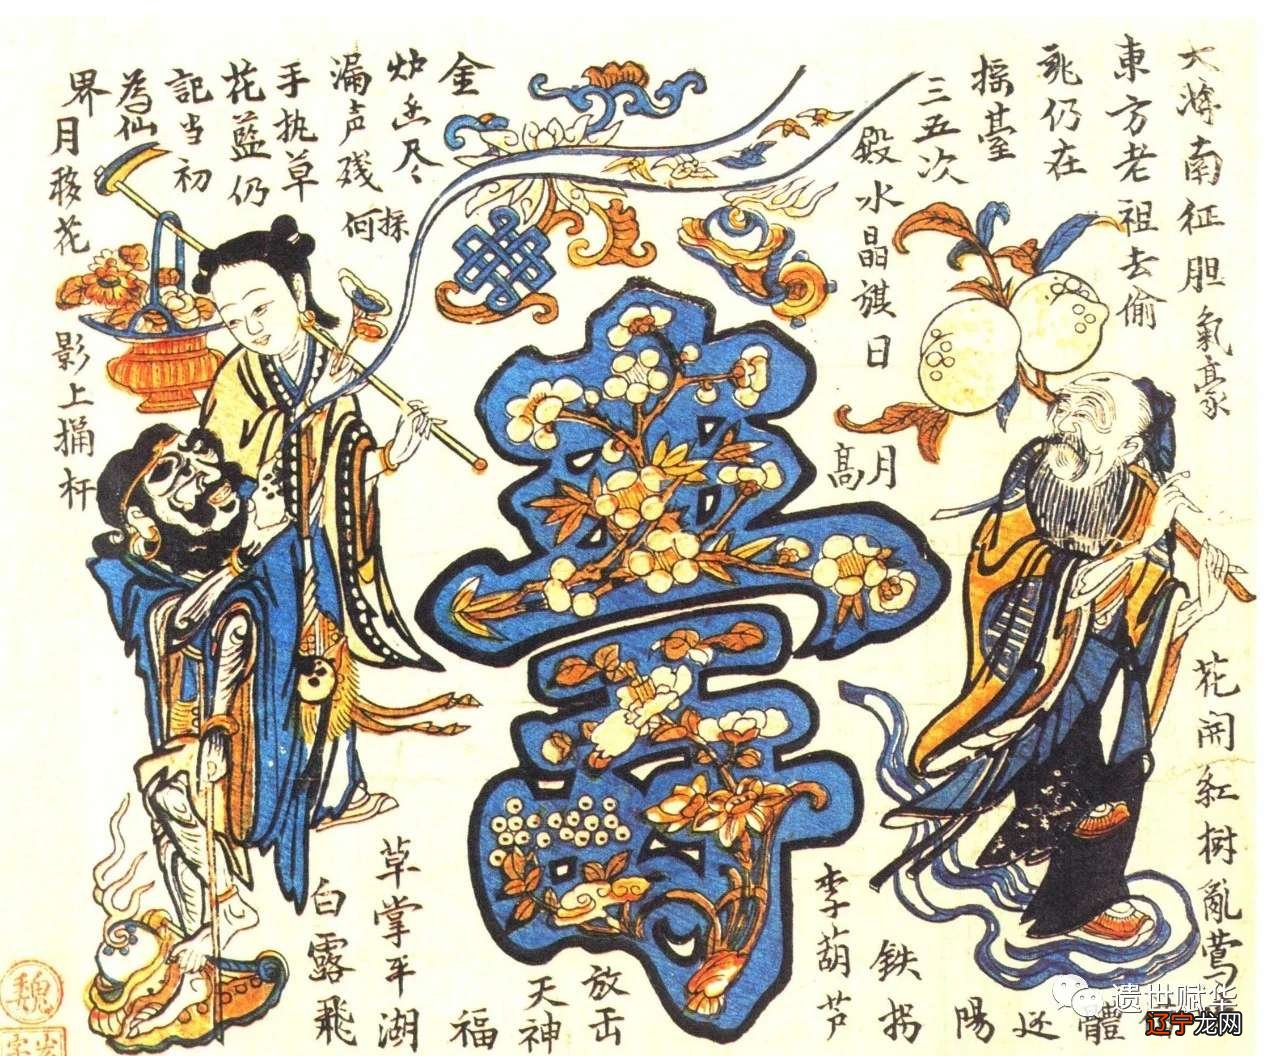 大將南征胆氣豪
東方老祖去偷
仍在
摇臺
三五次
殿水晶旗日
月
高
花開紅樹亂鶯
體
陽
鉄拐
李葫芦
放
天神
福
草掌平湖
白露飛
金
炉 尽
漏声残
採
何
手执草
花藍仍
記当初
為仙
界月移花
影上
魏
遗世赋华
辽宁龙网